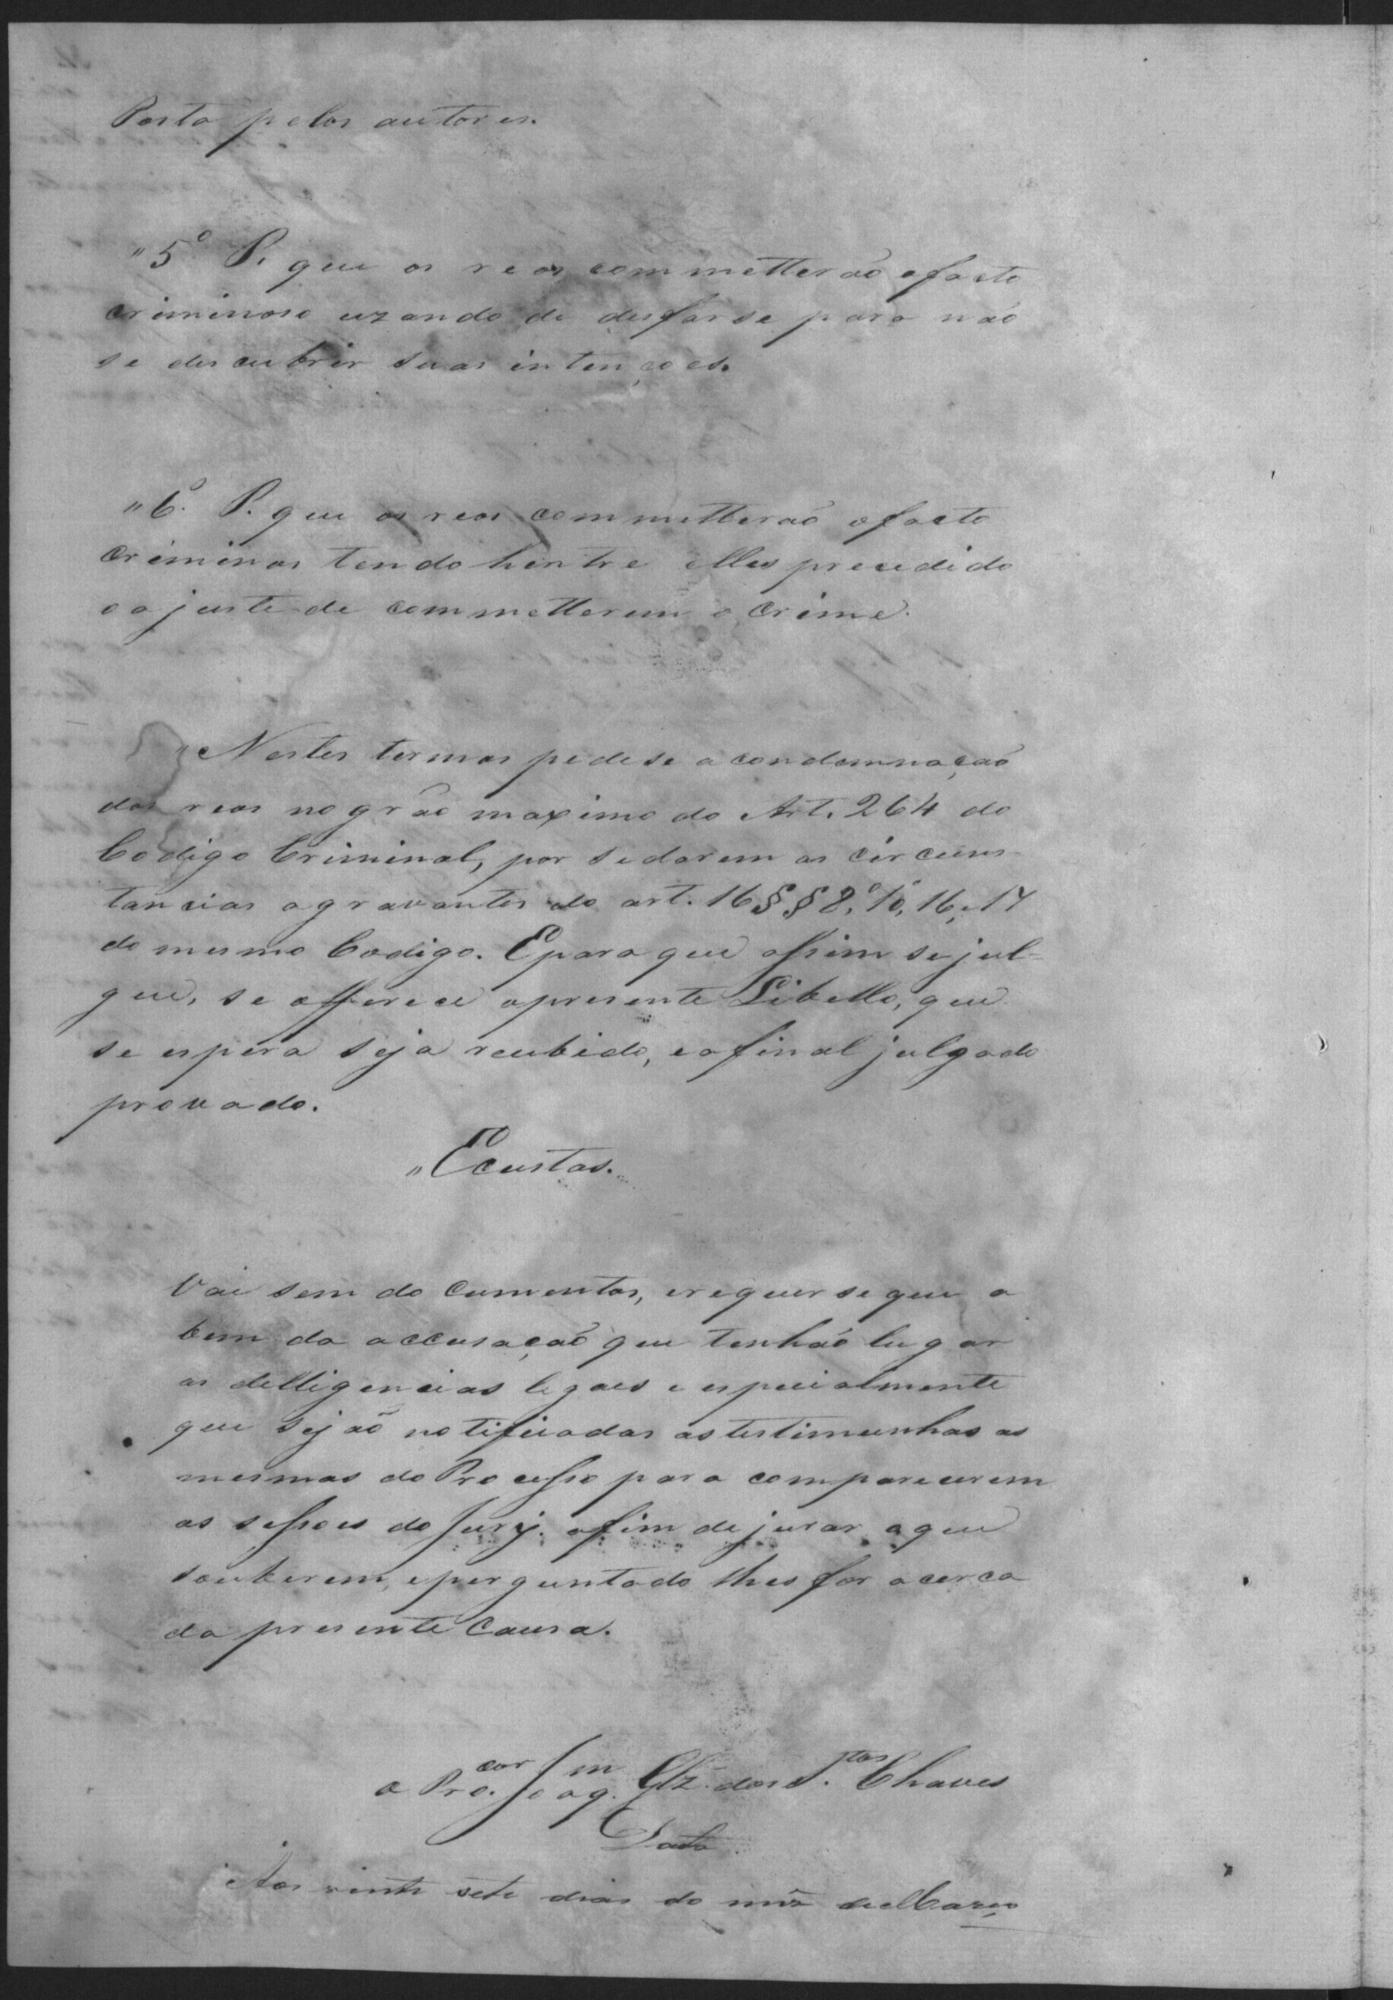 Posta pelos autores.
"5º P. que os reos commetterão o facto
criminoso uzando de disfarse para não
se descubrir suas intenções.
"6º. P. que os reos commetterão o facto
criminos tendo hentre elles precedido
o ajuste de commetterem o crime.
"Nestes termos pedese a condemnação
dos reos no gráo maximo do Art. 264 do
Codigo Criminal, por se darem as circums-
tancias agravantes do art. 16 §§ 8º, 10, 16, e 17
do mesmo Codigo. E para que assim se jul-
gue, se offerece o presente Libello, que
se espera seja recebido, e afinal julgado
provado.
"E custas.
Vai sem documentos, e requerse que a
bem da accusação que tenhão lugar
as delligencias legaes e especialmente
que sejão notificadas as testimunhas as
mesmas do Processo para comparecerem
as sessoes do Jury. afim de jurar o que
souberem, e perguntado lhes for acerca
da presente Causa.
o Pro.cor Joaq.m Glz. dos S.tos Chaves
Data
Aos vinte sete dias do mez de Março